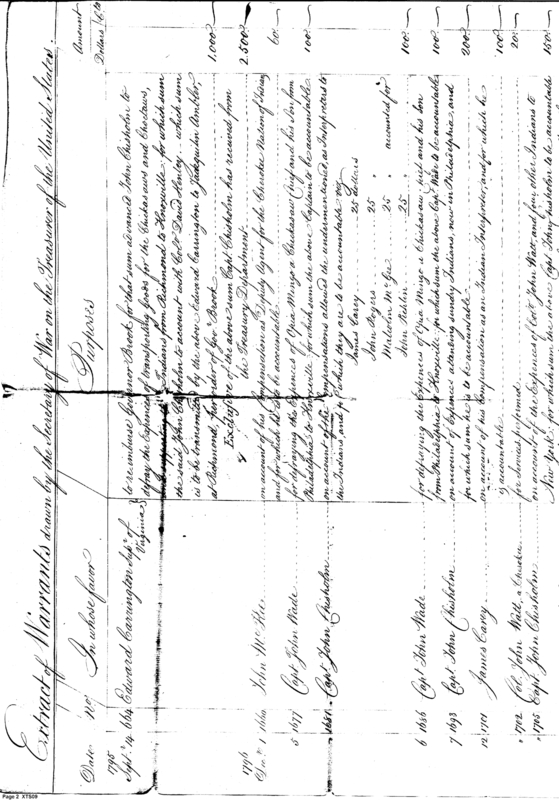 Extract of Warrants drawn by the Secretary of War on the Treasurer of the United States.
Date No. In whose favor Purposes Amount
Dollars Cts
1795
Sept. 14 1664 Edward Carrington Supr. of Virginia to reimburse Governor Brook for that sum advanced John Chisholm to
defray the Expences of transporting Goods for the Chickasaws and Choctaws,
Indians from Richmond to Knoxville for which sum
the said John Chisholm to account with Colo. David Henley which sum
is to be transmitted by the above Edward Carrington to Jacquelin Ambler,
at Richmond, for order of Gov. Brook 1.000
Exclusive of the above sum Capt Chisholm has received from
the Treasury Department 2.500
1796
1 1660 John McKee on account of his compensation as Deputy Agent for the Cherokee Nation of Indians
and for which he is to be accountable 60
5 1677 Capt John Wade for defraying the Expences of Opia Mingo a Chickasaw Chief and his Son from
Philadelphia to Knoxville for which sum the above Captain to be accountable 100
1681 Capt. John Chisholm on account of the compensations allowed the undermentioned, as Interpreters to
the Indians, and for which they are to be accountable viz
James Carey 25 Dollars
John Rogers 25 "
Malcolm McGee 25 " accounted for
John Pitchlin 25 " 100
6 1686 Capt John Wade for defraying the Expences of Opia Mingo a Chickasaw chief and his son
from Philadelphia to Knoxville for which sum the above Capt Wade to be accountable 100
7 1693 Capt John Chisholm on account of Expences attending sundry Indians, now in Philadelphia, and
for which sum he is to be accountable 200
12 1701 James Carey on account of his compensation as an Indian Interpreter, and for which he
is accountable 100
" 1702 Col. John Watts, a Cherokee for Services performed 20
" 1705 Capt John Chisholm on account of the Expences of Colo John Watts, and four other Indians to
New York for which sum the above Capt John Chisholm to be accountable 150
Page 2 XTS09